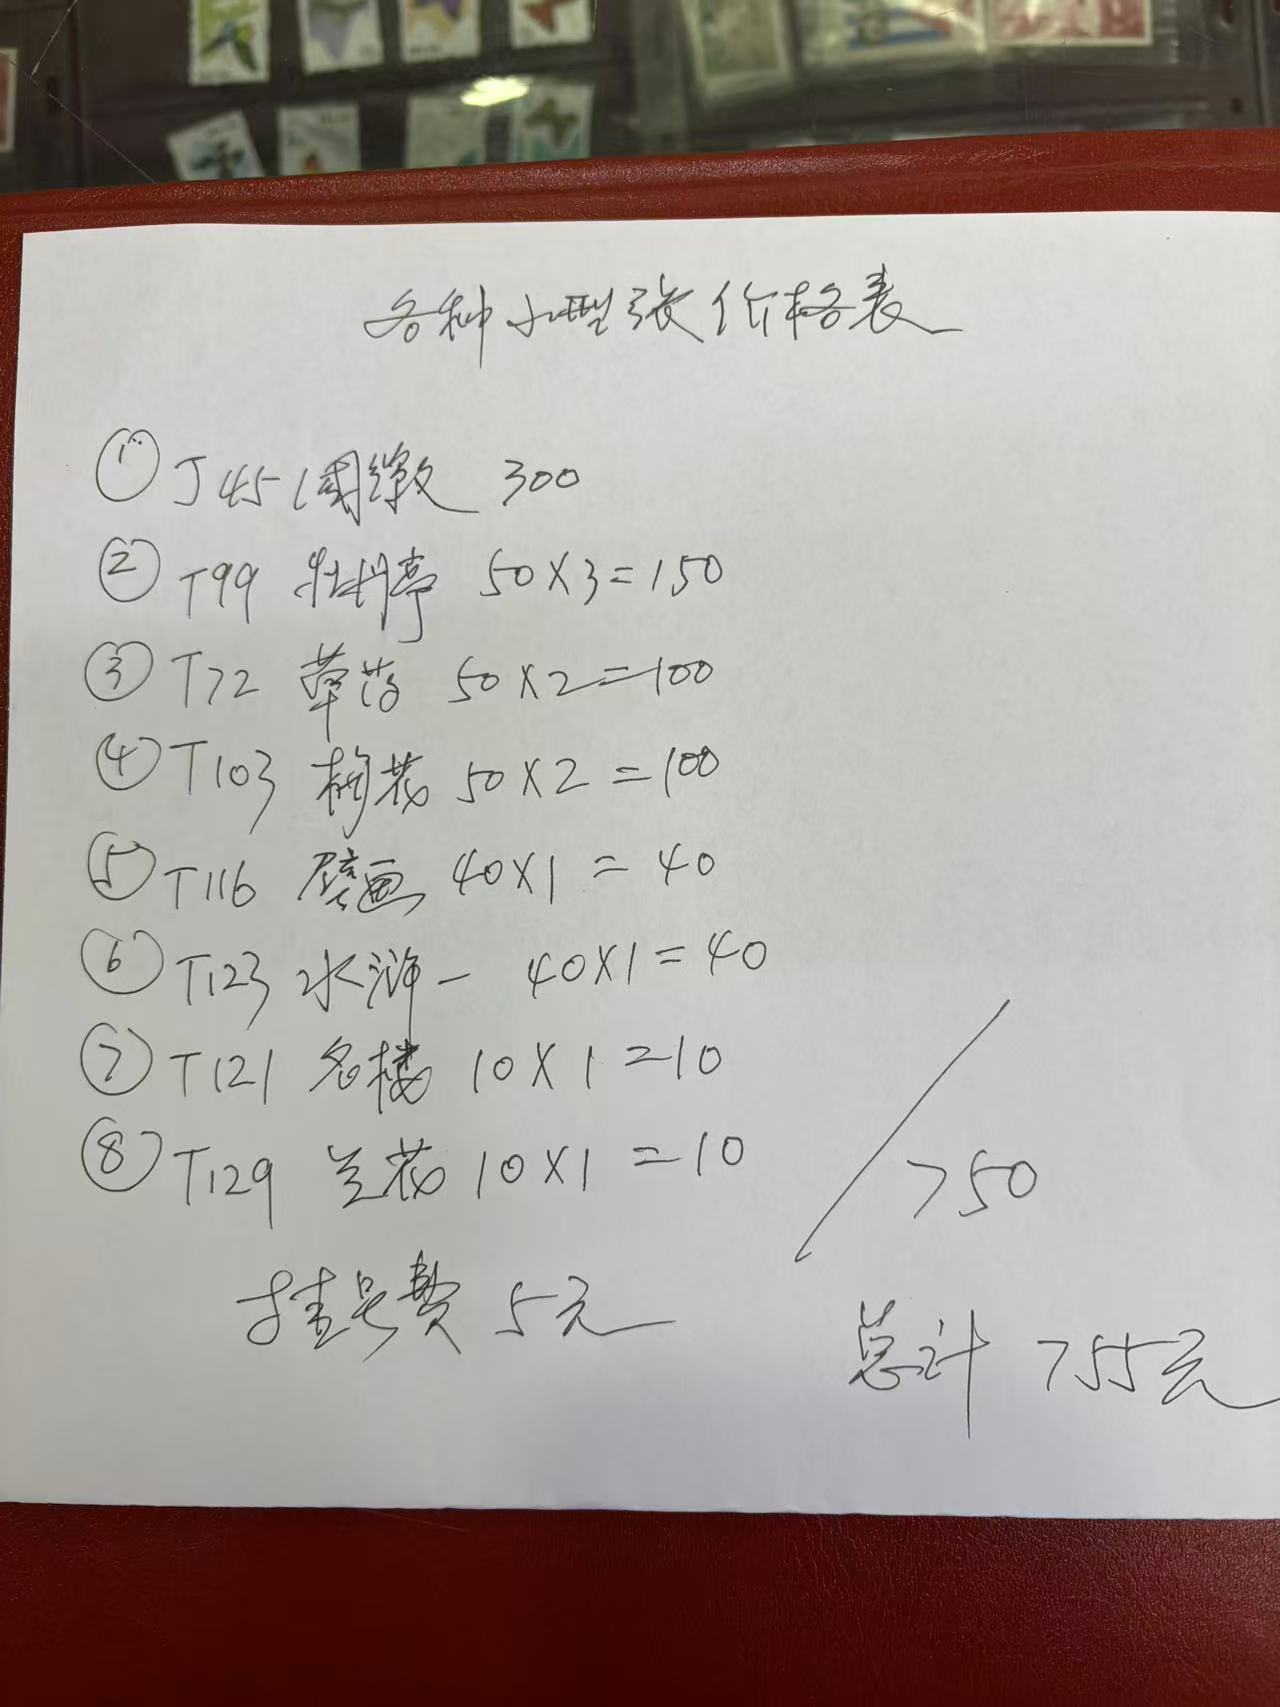 各种小型张价格表
① J45 (国徽 300
② T99 牡丹亭 50×3=150
③ T72 草药 50×2=100
④ T103 梅花 50×2=100
⑤ T116 壁画 40×1=40
⑥ T123 水浒一 40×1=40
⑦ T121 名楼 10×1=10
⑧ T129 兰花 10×1=10
750
挂号费 5元
总计 755元